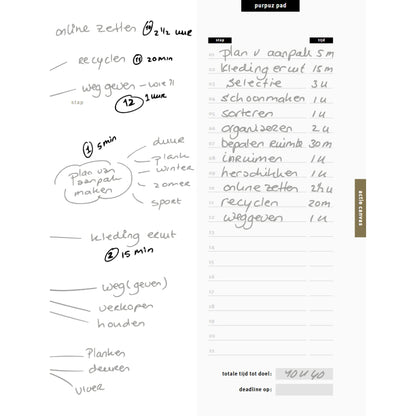 online zetten 10 2 1/2 uur
recyclen 11 20 min
weggeven - wie?!
stap
12 1 uur
1 5 min
plan van
aanpak
maken
deur
plank
winter
zomer
sport
kleding eruit
2 15 min
weg(geven)
verkopen
houden
Planken
deuren
vloer
purpuz pad
stap tijd
01 plan v aanpak 5 m
02 kleding eruit 15 m
03 selectie 3 u
04 schoonmaken 1 u
05 sorteren 1 u
06 organiseren 2 u
07 bepalen ruimte 30 m
08 inruimen 1 u
09 herschikken 1 u
10 online zetten 2½ u
11 recyclen 20 m
12 weggeven 1 u
13
14
15
16
17
18
19
20
21
22
totale tijd tot doel: 40 u 40
deadline op:
actie canvas